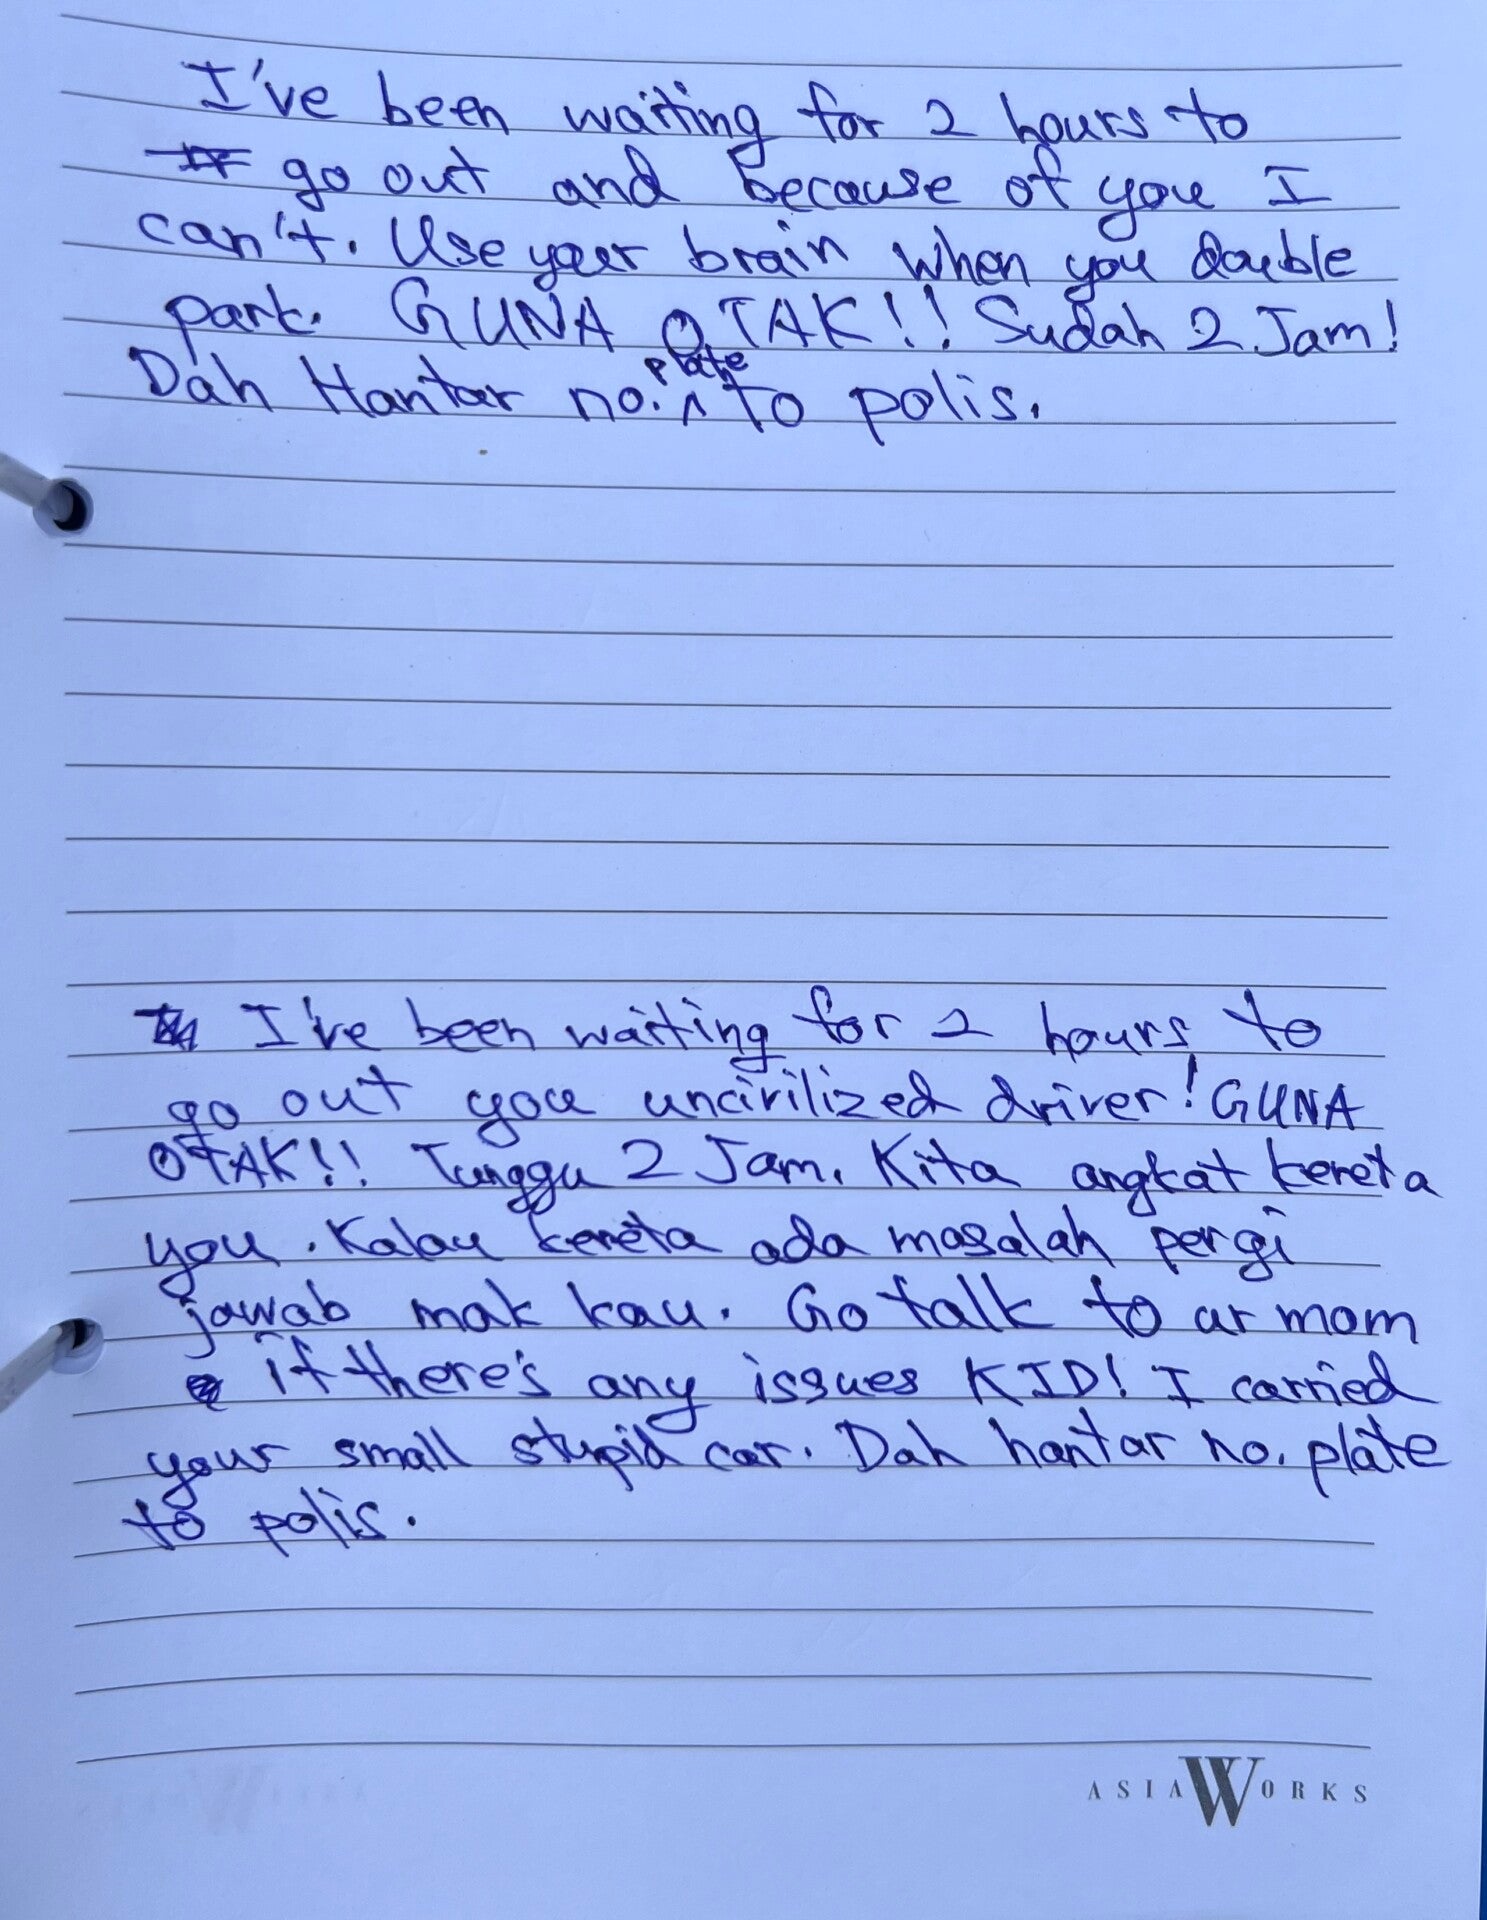 I've been waiting for 2 hours to
go out and because of you I
can't. Use your brain when you double
park. GUNA OTAK!! Sudah 2 Jam!
Dah Hantar no. plate to polis.
I've been waiting for 2 hours to
go out you uncivilized driver! GUNA
OTAK!! Tunggu 2 Jam. Kita angkat kereta
you. Kalau kereta ada masalah pergi
jawab mak kau. Go talk to ur mom
if there's any issues KID! I carried
your small stupid car. Dah hantar no. plate
to polis.
ASIAWORKS